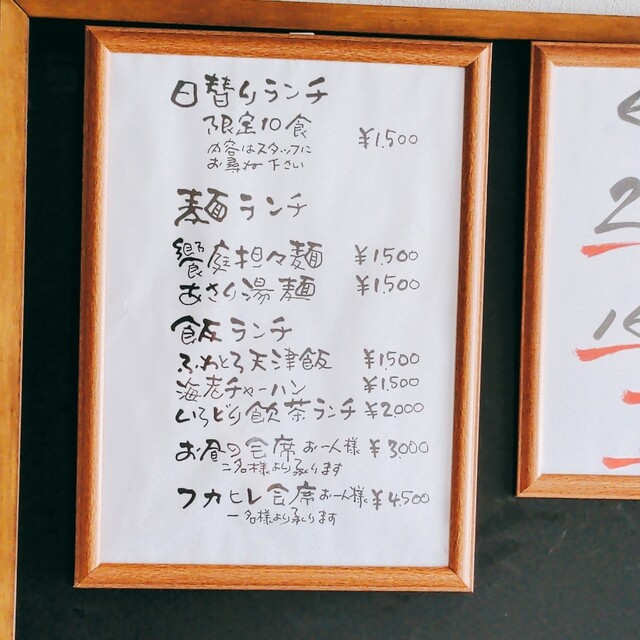 日替りランチ
限定10食 ¥1,500
内容はスタッフに
お尋ね下さい
麺ランチ
饗庭担々麺 ¥1,500
あさり湯麺 ¥1,500
飯ランチ
ふわとろ天津飯 ¥1,500
海老チャーハン ¥1,500
いろどり飲茶ランチ ¥2,000
お昼の会席お一人様 ¥3,000
二名様より承ります
フカヒレ会席お一人様 ¥4,500
一名様より承ります